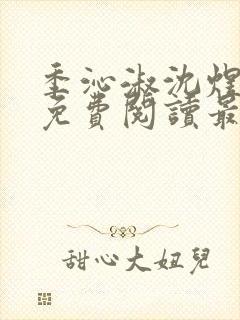 季沁淑沈煜
免費閱讀最
甜心大妞兒